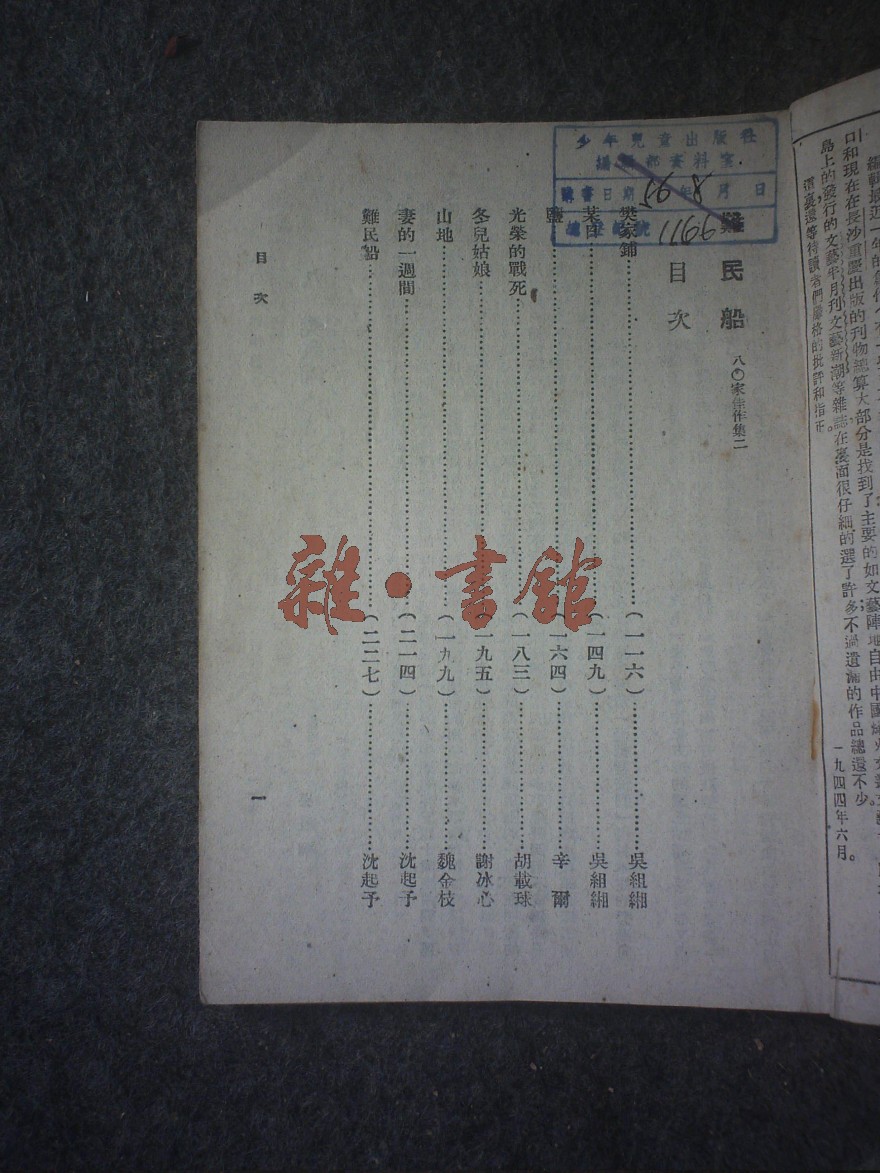 口和現在在長沙重慶出版的刊物總算大部分是找到了主要的如文藝陣地自由中國
島上的發行的文藝半月刊文藝新潮等雜誌在裏面很仔細的選了許多不過遺漏的作品總還不少。
還等待讀者們嚴格的批評和指正。
一九四四年六月。
少年兒童出版社
編輯部資料室
購書日期 56年8月 日
總 號 1166
難民船 八〇家佳作集二
目次
樊家鋪……(一一六)……吳組緗
菉百……(一四九)……吳組緗
鹽……(一六四)……辛爾
光榮的戰死……(一八三)……胡載球
冬兒姑娘……(一九五)……謝冰心
山地……(一九九)……魏金枝
妻的一週間……(二一四)……沈起予
難民船……(二二七)……沈起予
目次
一
雜·書館